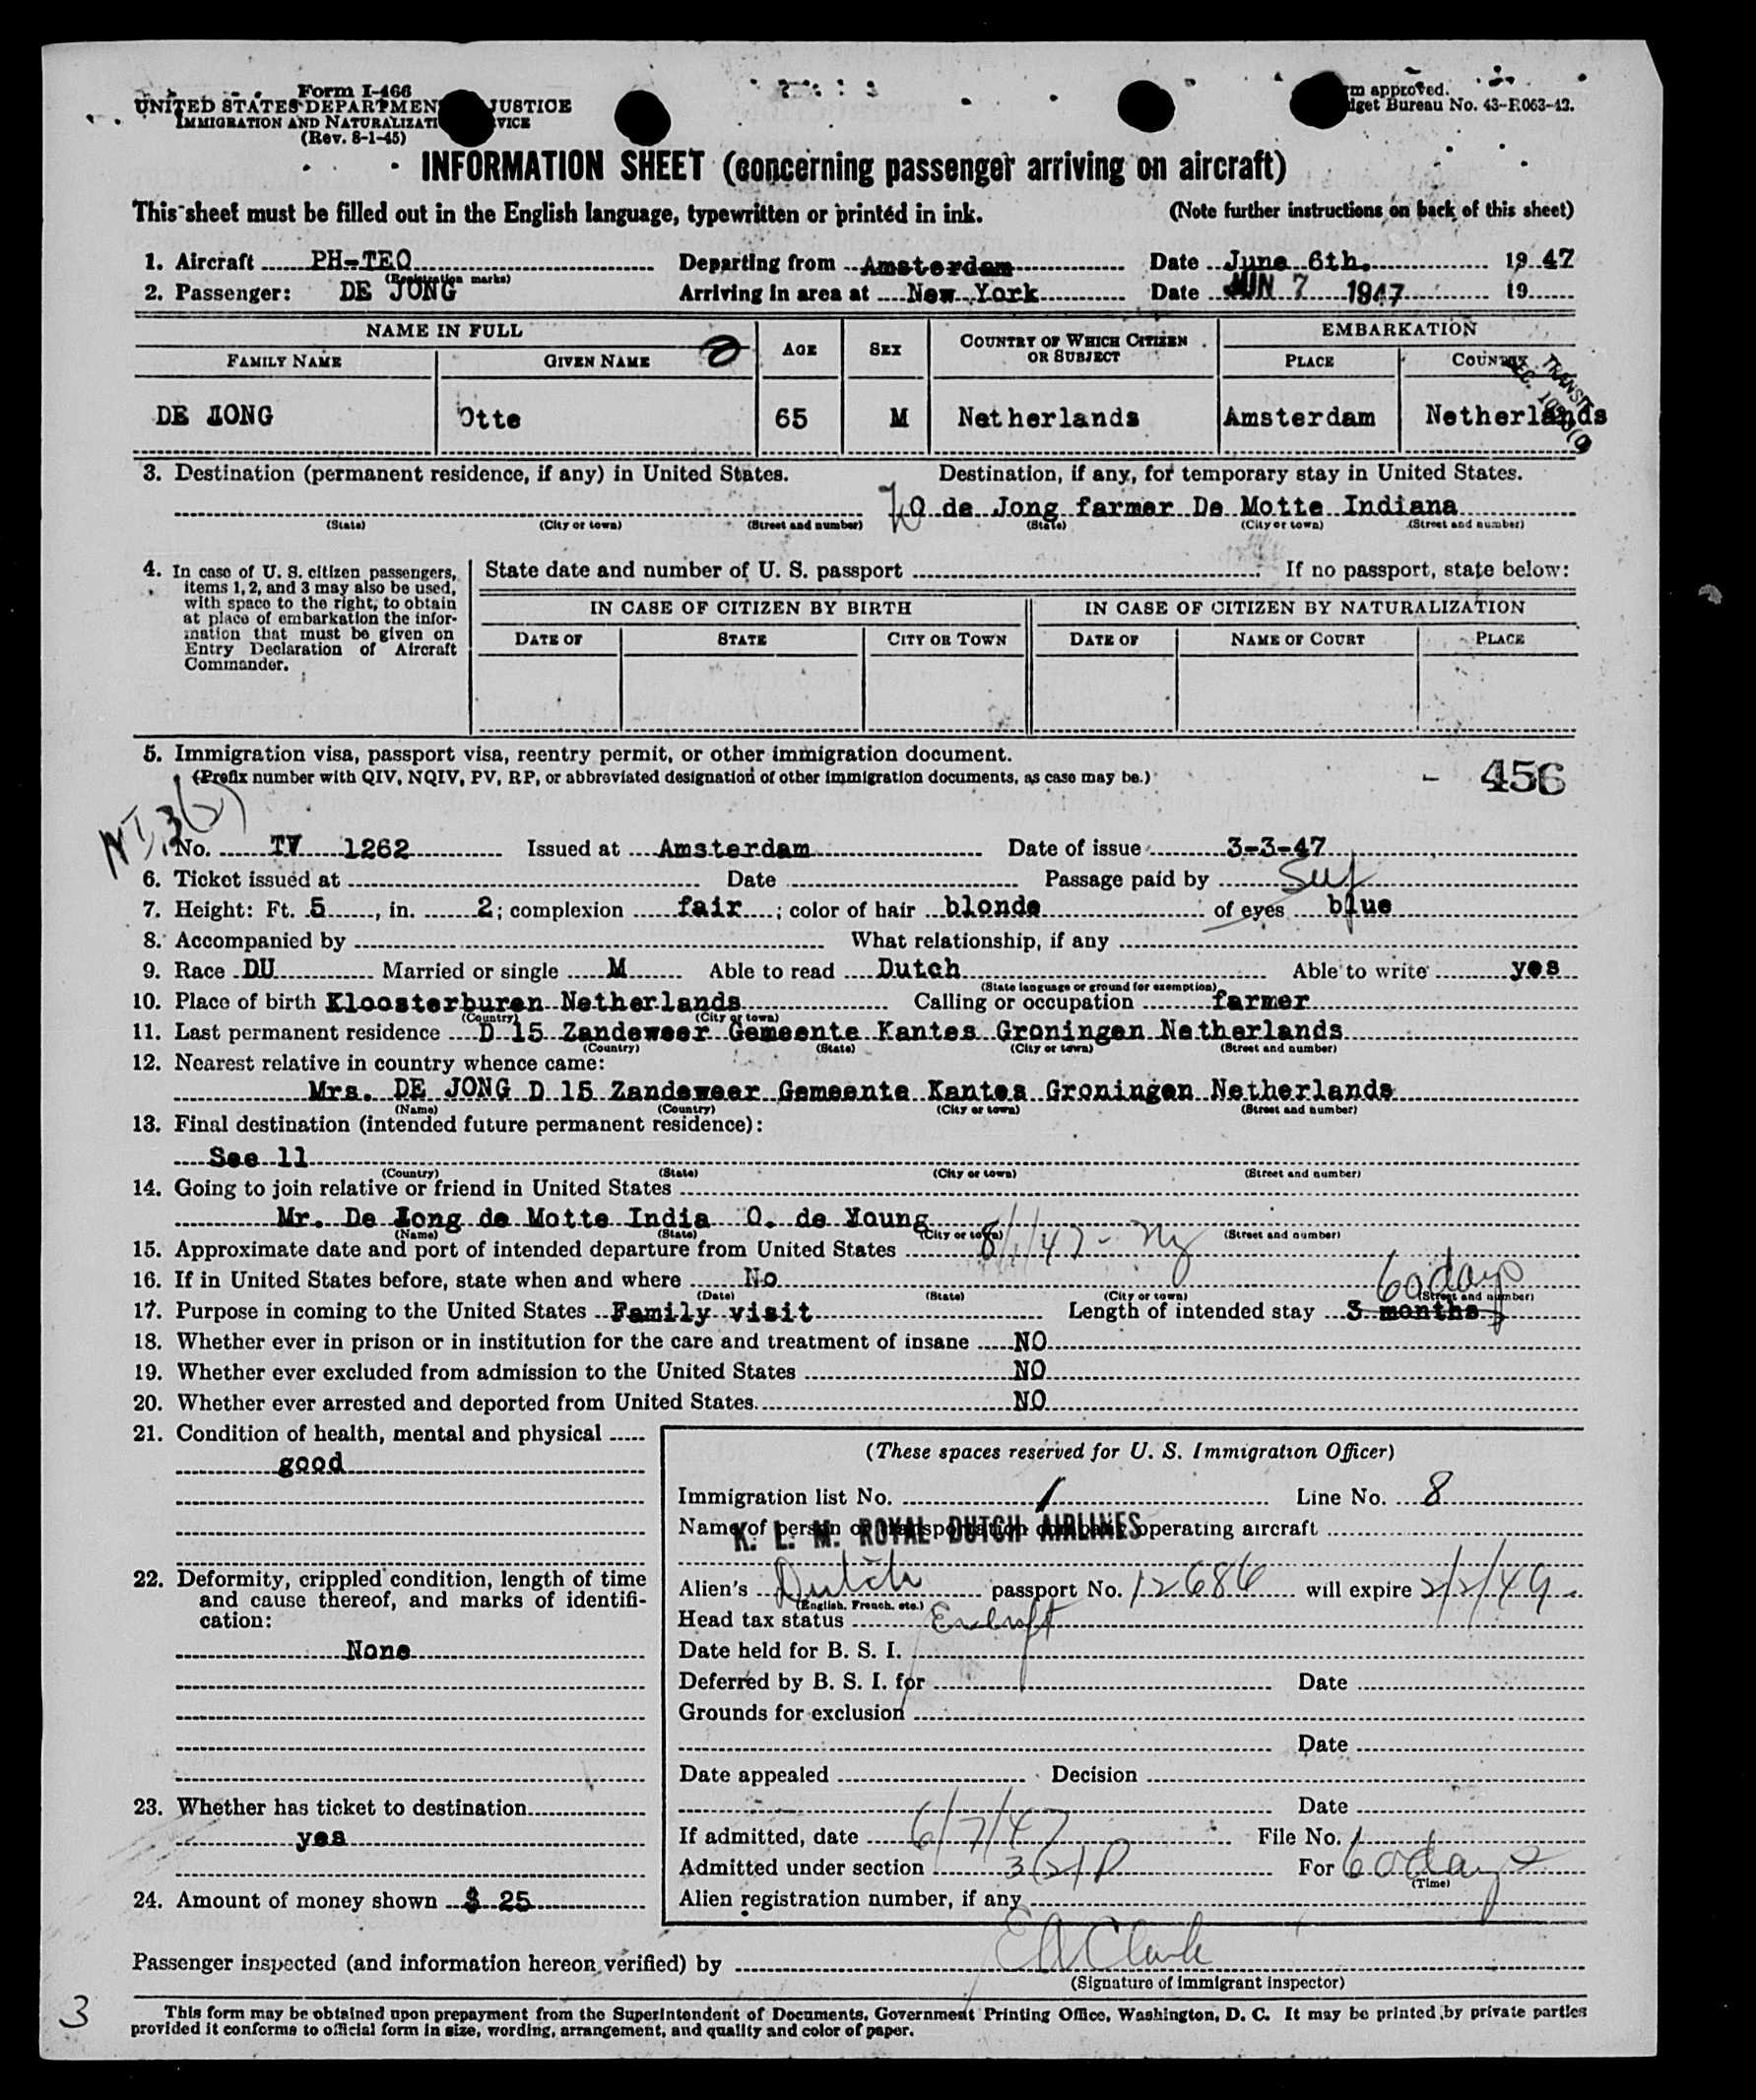 Form I-466
UNITED STATES DEPARTMEN JUSTICE
IMMIGRATION AND NATURALIZATI VICE
(Rev. 8-1-45)
m approved.
dget Bureau No. 43-R063-42.
INFORMATION SHEET (concerning passenger arriving on aircraft)
This sheet must be filled out in the English language, typewritten or printed in ink. (Note further instructions on back of this sheet)
1. Aircraft PH-TEO Departing from Amsterdam Date June 6th. 1947
(Registration marks)
2. Passenger: DE JONG Arriving in area at New York Date JUN 7 1947 19
NAME IN FULL AGE SEX COUNTRY OF WHICH CITIZEN OR SUBJECT EMBARKATION
FAMILY NAME GIVEN NAME PLACE COUNTRY
TRANSIT
DE JONG Otte 65 M Netherlands Amsterdam Netherlands
3. Destination (permanent residence, if any) in United States. Destination, if any, for temporary stay in United States.
O de Jong farmer De Motte Indiana
(State) (City or town) (Street and number) (State) (City or town) (Street and number)
4. In case of U. S. citizen passengers, items 1, 2, and 3 may also be used, with space to the right, to obtain at place of embarkation the information that must be given on Entry Declaration of Aircraft Commander.
State date and number of U. S. passport If no passport, state below:
IN CASE OF CITIZEN BY BIRTH IN CASE OF CITIZEN BY NATURALIZATION
DATE OF STATE CITY OR TOWN DATE OF NAME OF COURT PLACE
5. Immigration visa, passport visa, reentry permit, or other immigration document.
(Prefix number with QIV, NQIV, PV, RP, or abbreviated designation of other immigration documents, as case may be.)
456
No. TV 1262 Issued at Amsterdam Date of issue 3-3-47
6. Ticket issued at Date Passage paid by Self
7. Height: Ft. 5, in. 2; complexion fair; color of hair blonde of eyes blue
8. Accompanied by What relationship, if any
9. Race DU Married or single M Able to read Dutch Able to write yes
(State language or ground for exemption)
10. Place of birth Kloosterburen Netherlands Calling or occupation farmer
(Country) (City or town)
11. Last permanent residence D 15 Zandeweer Gemeente Kantes Groningen Netherlands
(Country) (State) (City or town) (Street and number)
12. Nearest relative in country whence came:
Mrs. DE JONG D 15 Zandeweer Gemeente Kantes Groningen Netherlands
(Name) (Country) (City or town) (Street and number)
13. Final destination (intended future permanent residence):
See 11
(Country) (State) (City or town) (Street and number)
14. Going to join relative or friend in United States
Mr. De Jong de Motte India O. de Young
(Name) (State) (City or town) (Street and number)
15. Approximate date and port of intended departure from United States 8/1/47 - Ny
16. If in United States before, state when and where No
60 days
(Date) (State) (City or town) (Street and number)
17. Purpose in coming to the United States Family visit Length of intended stay 3 months
18. Whether ever in prison or in institution for the care and treatment of insane NO
19. Whether ever excluded from admission to the United States NO
20. Whether ever arrested and deported from United States. NO
21. Condition of health, mental and physical
good
22. Deformity, crippled condition, length of time and cause thereof, and marks of identification:
None
23. Whether has ticket to destination
yes
24. Amount of money shown $ 25
(These spaces reserved for U. S. Immigration Officer)
Immigration list No. 1 Line No. 8
Name of person or transportation company operating aircraft
K. L. M. ROYAL DUTCH AIRLINES
Alien's Dutch passport No. 12686 will expire 2/2/49
(English, French, etc.)
Head tax status Exempt
Date held for B. S. I.
Deferred by B. S. I. for Date
Grounds for exclusion
Date
Date appealed Decision
Date
If admitted, date 6/7/47 File No.
Admitted under section 3(2) For 60 days
(Time)
Alien registration number, if any
Passenger inspected (and information hereon verified) by E A Clark
(Signature of immigrant inspector)
3
This form may be obtained upon prepayment from the Superintendent of Documents, Government Printing Office, Washington, D. C. It may be printed by private parties
provided it conforms to official form in size, wording, arrangement, and quality and color of paper.